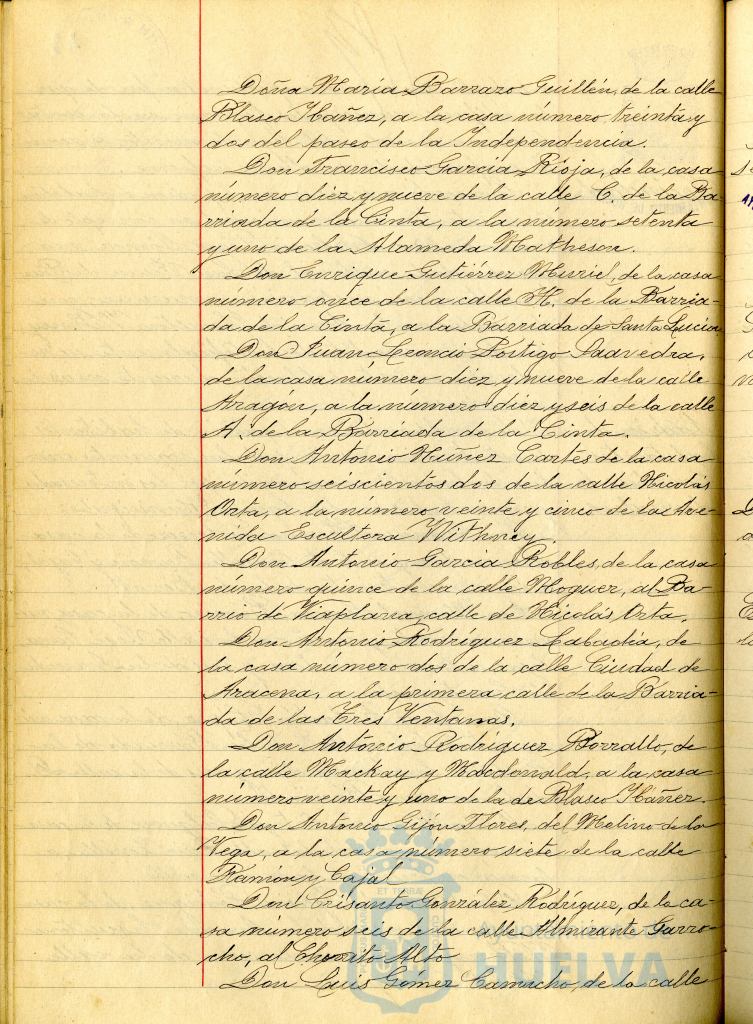 Doña María Barrazo Guillén, de la calle
Blasco Ibáñez, a la casa número treinta y
dos del paseo de la Independencia.
Don Francisco García Rioja, de la casa
número diez y nueve de la calle C. de la Ba-
rriada de la Cinta, a la número setenta
y uno de la Alameda Matheson.
Don Enrique Gutiérrez Muriel, de la casa
número once de la calle H. de la Barria-
da de la Cinta, a la Barriada de Santa Lucía
Don Juan Leoncio Portigo Saavedra,
de la casa número diez y nueve de la calle
Aragón, a la número diez y seis de la calle
A. de la Barriada de la Cinta.
Don Antonio Núñez Cartes de la casa
número seiscientos dos de la calle Nicolás
Orta, a la número veinte y cinco de la Ave-
nida Escultora Withney.
Don Antonio García Robles, de la casa
número quince de la calle Moguer, al Ba-
rrio de Viaplana, calle de Nicolás Orta.
Don Antonio Rodríguez Labadía, de
la casa número dos de la calle Ciudad de
Aracena, a la primera calle de la Barria-
da de las Tres Ventanas.
Don Antonio Rodríguez Borrallo, de
la calle Mackay y Macdonald, a la casa
número veinte y uno de la de Blasco Ibáñez.
Don Antonio Gijón Flores, del Molino de la
Vega, a la casa número siete de la calle
Ramón y Cajal
Don Crisanto González Rodríguez, de la ca-
sa número seis de la calle Almirante Garro-
cho, al Chorrito Alto
Don Luis Gomez Camacho, de la calle
HUELVA